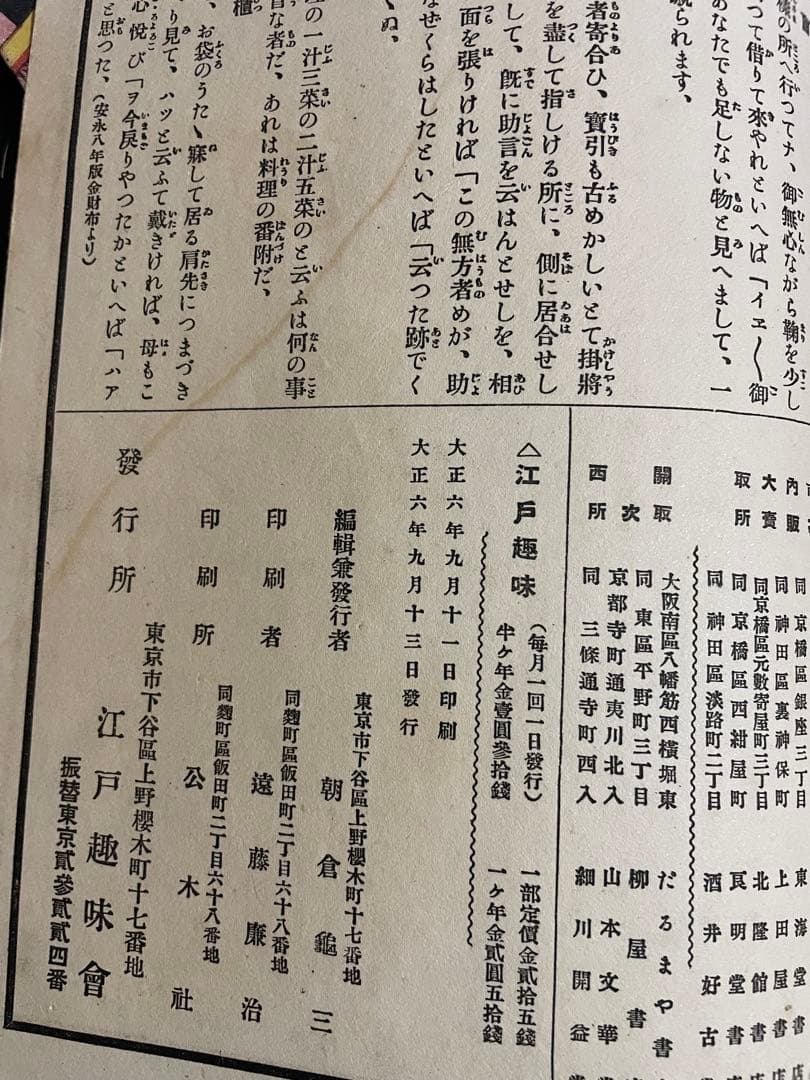 樣の所へ行つてナ、御無心ながら鞠を少し
つて借りて來やれといへば「イエ〱御
のあなたでも足しない物と見へまして、一
られます。
者寄合ひ、寶引も古めかしいとて掛將
を盡して指しける所に、側に居合せし
して、既に助言を云はんとせしを、相
面を張りければ「この無方者めが、助
なぜくらはしたといへば「云つた跡でく
ぬ。
の一汁三菜の二汁五菜のと云ふは何の事
な者だ、あれは料理の番附だ、
櫃
、お袋のうたゝ寐して居る肩先につまづき
り見て、ハツと云ふて戴きければ、母もこ
心悅び「ヲ今戾りやつたかといへば「ハア
と思つた、(安永八年版金財布より)
內販
大賣
取所
同京橋區銀座三丁目 東海堂書店
同神田區裏神保町 上田屋書店
同京橋區元數寄屋町三丁目 北隆館書店
同京橋區西紺屋町 良明堂書
同神田區淡路町二丁目 酒井好古
關取
次
西所
大阪南區八幡筋西橫堀東 だるまや書
同東區平野町三丁目 柳屋書
京都寺町通夷川北入 山本文華
同三條通寺町西入 細川開益
△江戶趣味 (每月一回一日發行) 一部定價金貳拾五錢
半ケ年金壹圓參拾錢 一ケ年金貳圓五拾錢
大正六年九月十一日印刷
大正六年九月十三日發行
編輯兼發行者 東京市下谷區上野櫻木町十七番地
朝倉龜三
印刷者 同麴町區飯田町二丁目六十八番地
遠藤廉治
印刷所 同麴町區飯田町二丁目六十八番地
公木社
發行所 東京市下谷區上野櫻木町十七番地
江戶趣味會
振替東京貳參貳貳四番